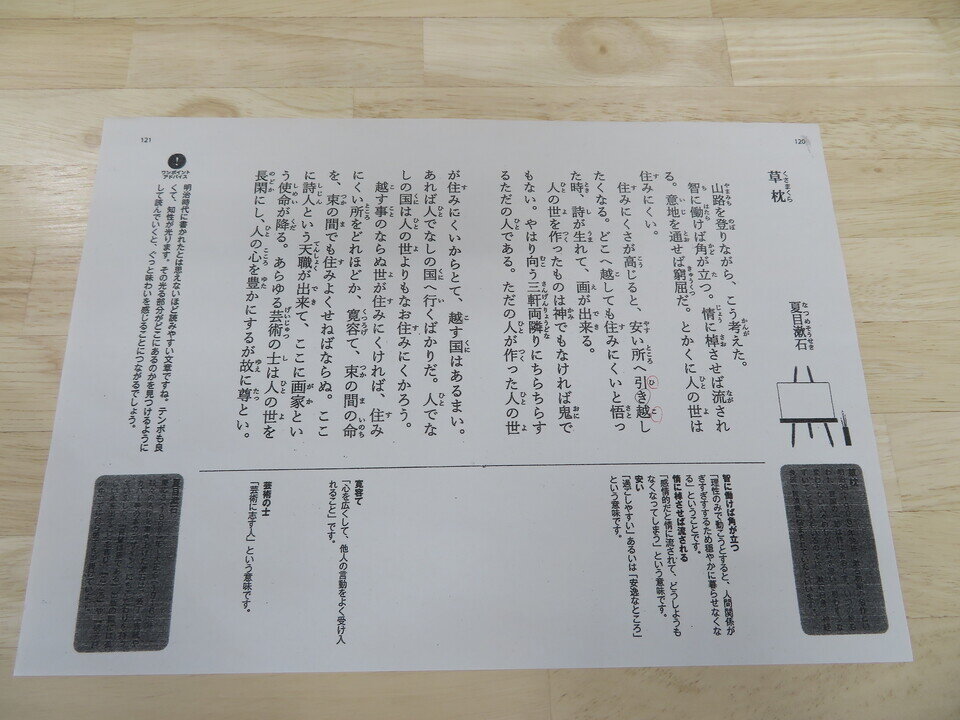 120
草枕
夏目漱石
山路を登りながら、こう考えた。
智に働けば角が立つ。情に棹させば流され
る。意地を通せば窮屈だ。とかくに人の世は
住みにくい。
住みにくさが高じると、安い所へ引き越し
たくなる。どこへ越しても住みにくいと悟っ
た時、詩が生れて、画が出来る。
人の世を作ったものは神でもなければ鬼で
もない。やはり向う三軒両隣りにちらちらす
るただの人である。ただの人が作った人の世
が住みにくいからとて、越す国はあるまい。
あれば人でなしの国へ行くばかりだ。人でな
しの国は人の世よりもなお住みにくかろう。
越す事のならぬ世が住みにくければ、住み
にくい所をどれほどか、寛容て、束の間の命
を、束の間でも住みよくせねばならぬ。ここ
に詩人という天職が出来て、ここに画家とい
う使命が降る。あらゆる芸術の士は人の世を
長閑にし、人の心を豊かにするが故に尊とい。
智に働けば角が立つ
「理性のみで動こうとすると、人間関係が
ぎすぎすするため穏やかに暮らせなくな
る」ということです。
情に棹させば流される
「感情的だと情に流されて、どうしようも
なくなってしまう」という意味です。
安い
「過ごしやすい」あるいは「安逸なところ」
という意味です。
寛容て
「心を広くして、他人の言動をよく受け入
れること」です。
芸術の士
「芸術に志す人」という意味です。
121
ワンポイント
アドバイス
明治時代に書かれたとは思えないほど読みやすい文章ですね。テンポも良
くて、知性が光ります。その光る部分がどこにあるのかを見つけるように
して読んでいくと、ぐっと味わいを感じることにつながるでしょう。
草枕
夏目漱石